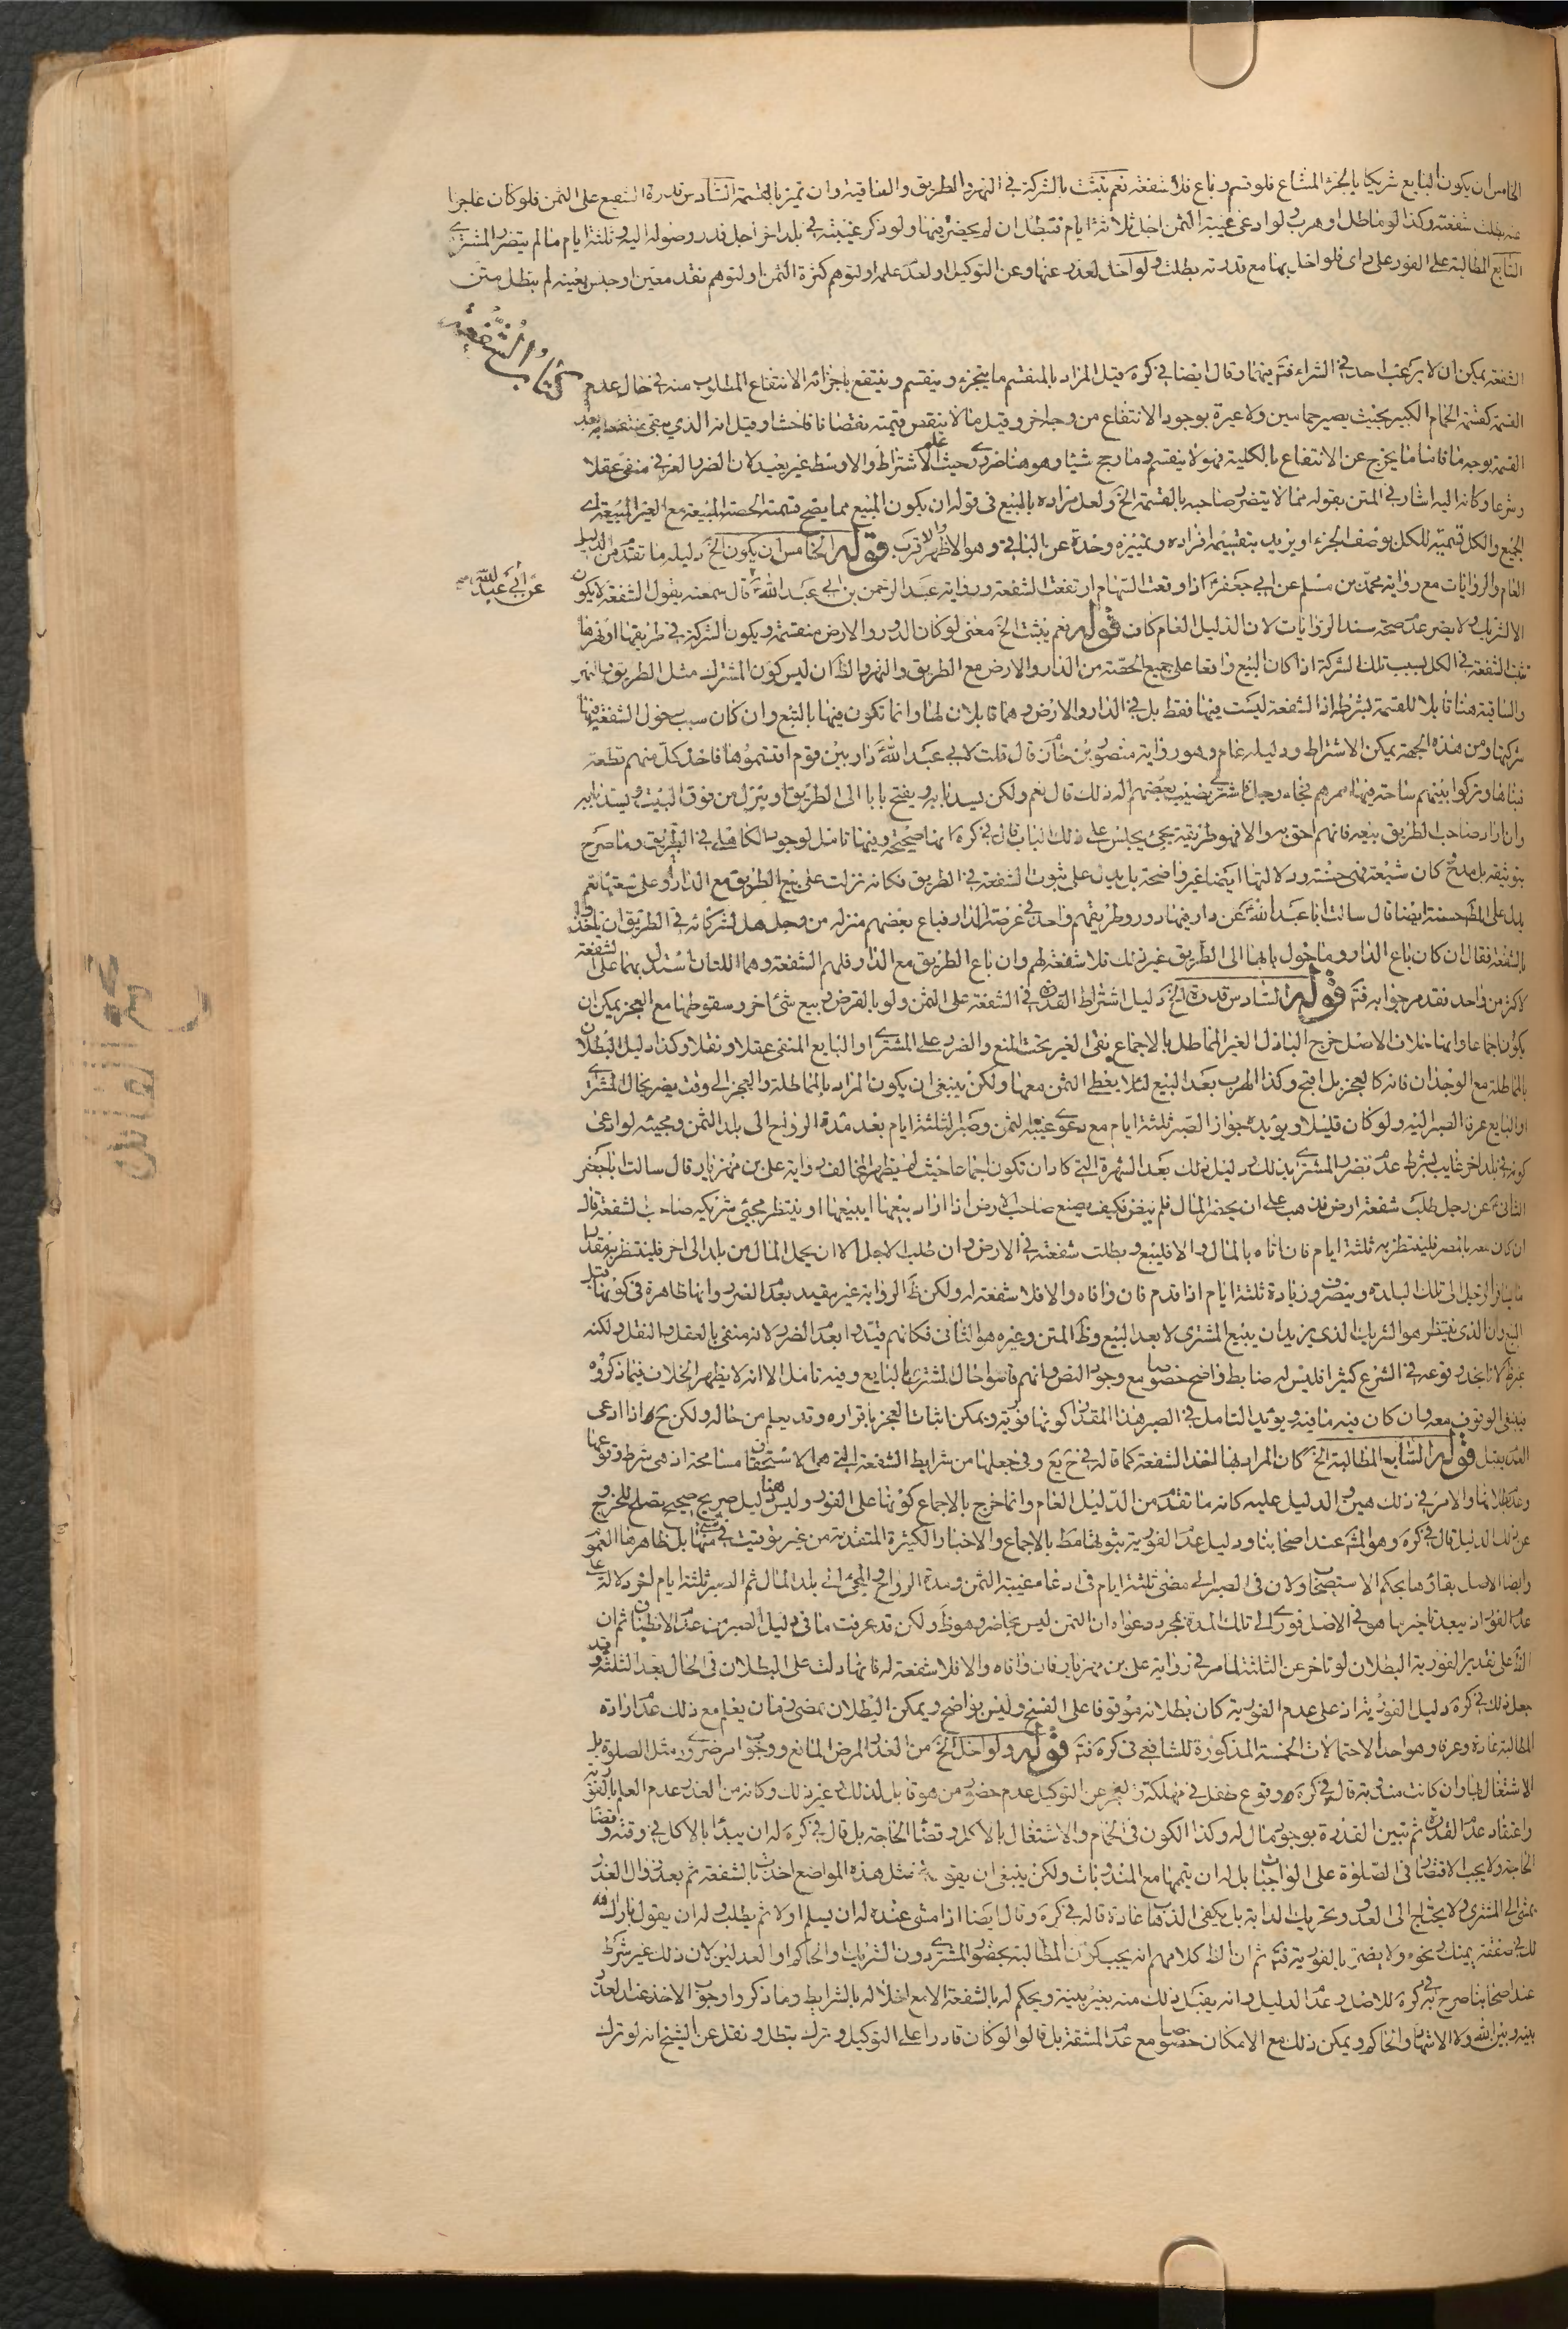 الخامس ان يكون البايع شريكا بالجزء المشاع فلو قسم وباع فلا شفعة نعم يثبت بالشركة في النهر والطريق والساقية وان تميز بالقسمة السادس قدرة الشفيع على الثمن فلو كان عاجزا
عنه بطلت شفعته وكذا لو ماطل او هرب ولو ادعى غيبة الثمن اجل ثلاثة ايام فتبطل ان لم يحضره فيها ولو ذكر غيبته في بلد اخر اجل قدر وصوله اليه وثلثة ايام ما لم يتضرر المشترى
السابع المطالبة على الفور على راى فلو اخل بها مع قدرته بطلت ولو اخل لعذر عنها وعن التوكيل او لعدم علمه او لتوهم كثرة الثمن او لتوهم نقد معين او جنس بعينه لم يبطل متن
كتاب الشفعة
الشفعة يمكن ان لا يرغب احد في الشراء فتم فيهما وقال ايضا في كره قيل المراد بالمنقسم ما يتجزء وينقسم وينتفع باجزائه الانتفاع المطلوب منه في حال عدم
القسمة كقسمة الحمام الكبير بحيث يصير حمامين ولا عبرة بوجود الانتفاع من وجه اخر وقيل ما لا ينقص قيمته نقصانا فاحشا وقيل انه الذي يبقى منتفعا به بعد
القسمة بوجه ما فاما ما يخرج عن الانتفاع بالكلية فهو لا ينقسم وما رجح شيئا وهو هنا ضروري حيث علم الاشتراط والاوسط غير بعيد لان الضرر العرفي منفى عقلا
وشرعا وكانه اليه اشار في المتن بقوله مما لا يتضرر صاحبه بالقسمة الخ ولعل مراده بالمبيع في قوله ان يكون المبيع مما يصح قسمته الحصة المبيعة مع الغير المبيعة اي
الجميع والكل قسمية للكل بوصف الجزء او يريد بتقسيمه افرازه وتمييزه وحده عن الباقي وهو الاظهر والاقرب قوله الخامس ان يكون الخ دليله ما تقدم من الدليل
العام والروايات مع رواية محمد بن مسلم عن ابي جعفر اذا وقعت السهام ارتفعت الشفعة ورواية عبد الرحمن بن ابي عبد الله قال سمعته يقول الشفعة لا يكون
عن أبي عبد الله
الا لشريك ولا يضر عدم صحة سند الروايات لان الدليل العام كاف قوله نعم يثبت الخ معنى لو كان الدور والارض منقسمة ويكون الشركة في طريقها او نهرها
تثبت الشفعة في الكل بسبب تلك الشركة اذا كان البيع واقعا على جميع الحصة من الدار والارض مع الطريق والنهر والظ ان ليس كون المشترك مثل الطريق والنهر
والساقية هنا قابلا للقسمة بشرط اذ الشفعة ليست فيها فقط بل في الدار والارض وهما قابلان لها وانما تكون فيها بالتبع وان كان سبب حصول الشفعة فيها
شركتها ومن هذه الجهة يمكن الاشتراط ودليله عام وهو رواية منصور بن حازم قال قلت لابي عبد الله دار بين قوم اقتسموها فاخذ كل منهم قطعة
فبناها وتركوا بينهم ساحة فيها ممرهم فجاء رجل فاشترى نصيب بعضهم اله ذلك قال نعم ولكن يسد بابه ويفتح بابا الى الطريق او ينزل من فوق البيت ويسد بابه
وان اراد صاحب الطريق بيعه فانهم احق به والا فهو طريقه يجئ يجلس على ذلك الباب قال في كره انها صحيحة وفيها تامل لوجود الكاهلي في الطريق وما صرح
بتوثيقه بل مدح كان شيعة فهى حسنة ودلالتها ايضا غير واضحة بل يدل على ثبوت الشفعة في الطريق فكانه نزلت على بيع الطريق مع الدار وعلى تبعتها نعم
يدل على المط حسنة ايضا قال سالت ابا عبد الله عن دار فيها دور وطريقهم واحد في عرصة الدار فباع بعضهم منزله من رجل هل لشركائه في الطريق ان ياخذوا
بالشفعة فقال ان كان باع الدار وما حول بابها الى الطريق غير ذلك فلا شفعة لهم وان باع الطريق مع الدار فلهم الشفعة وهما اللتان استدل بهما على الشفعة
لاكثر من واحد تقدم جوابه فتم قوله السادس قدرة الخ دليل اشتراط القدرة في الشفعة على الثمن ولو بالقرض وبيع شئ اخر وسقوطها مع العجز يمكن ان
يكون اجماعا وانها خلاف الاصل خرج الباذل الغير المماطل بالاجماع بقى الغير تحت المنع والضرر على المشترى او البايع المنفى عقلا ونقلا وكذا دليل البطلان
بالمماطلة مع الوجدان فانه كالعجز بل اقبح وكذا الهرب بعد البيع لئلا يعطى الثمن معها ولكن ينبغى ان يكون المراد بالمماطلة والعجز الى وقت يضر بحال المشترى
او البايع عرفا الصبر اليه ولو كان قليلا ويؤيده جواز الصبر ثلثة ايام مع دعوى غيبة الثمن وصبر الثلثة ايام بعد مدة الرواح الى بلد الثمن ومجيئه لو ادعى
كونه في بلد اخر غايب بشرط عدم تضرر المشترى بذلك ودليل ذلك بعد الشهرة التى كادان تكون اجماعا حيث لم يظهر المخالف رواية على بن مهزيار قال سالت ابا جعفر
الثاني عن رجل طلب شفعة ارض فذهب على ان يحضر المال فلم ينض فكيف يصنع صاحب الارض اذا اراد بيعها ايبيعها او ينتظر مجيئ شريكه صاحب الشفعة قال
ان كان معه بالمصر فلينتظر به ثلثة ايام فان اتاه بالمال والا فليبع وبطلت شفعته في الارض وان طلب الاجل الى ان يحمل المال من بلد الى اخر فلينتظر به مقدار
ما يسافر الرجل الى تلك البلدة وينصرف وزيادة ثلثة ايام اذا قدم فان وافاه والا فلا شفعة له ولكن ظ الرواية غير مقيد بعدم الضرر وانها ظاهرة في كونها قبل
البيع وان الذى ينتظر هو الشريك الذى يريد ان يبيع المشترى لا بعد البيع وظ المتن وغيره هو الثانى فكانهم قيدوا بعدم الضرر لانه منفى بالعقل والنقل ولكنه
غير ظ لانا نجد وقوعه في الشرع كثيرا فليس له ضابط واضح خصوصا مع وجود النص وانهم قاسوا حال المشترى بالبايع وفيه تامل الا انه لا يظهر الخلاف فيما ذكروه
فينبغى الوقوف معه وان كان فيه ما فيه ويؤيد التامل في الصبر هذا المقدار كونها فورية ويمكن اثبات العجز باقراره وقد يعلم من حاله ولكن ح اذا ادعى
القدرة يقبل قوله السابع المطالبة الخ كان المراد بها اخذ الشفعة كما قاله في يع وفي جعلها من شرايط الشفعة التى هى الاستحقاق مسامحة اذ هى شرط وقوعها
وعدم بطلانها والامر في ذلك هين والدليل عليه كانه ما تقدم من الدليل العام وانما خرج بالاجماع كونها على الفور وليس هنا دليل صريح صحيح يصلح للخروج
عن ذلك الدليل قال في كره وهو المشهور عند اصحابنا ودليل عدم الفورية ثبوتها مط بالاجماع والاخبار الكثيرة المتقدمة من غير توقيت في شئ منها بل ظاهرها العموم
وايضا الاصل بقاؤها بحكم الاستصحاب ولان في الصبر الى مضى ثلثة ايام في ادعاء غيبة الثمن ومدة الرواح والمجئ الى بلد المال ثم الصبر ثلثة ايام اخر دلالة على
عدم الفور اذ يبعد تاخير ما هو في الاصل فورى الى تلك المدة بمجرد دعواه ان الثمن ليس بحاضر وهو ظ ولكن قد عرفت ما في دليل الصبر من عدم الاطمينان ثم ان
الظ على تقدير الفورية البطلان لو تاخر عن الثلثة لما مر في رواية على بن مهزيار فان وافاه والا فلا شفعة له فانها دلت على البطلان في الحال بعد الثلثة وقد
جعل ذلك في كره دليل الفورية اذ على عدم الفورية كان بطلانه موقوفا على الفسخ وليس بواضح ويمكن البطلان بمضى زمان يعلم مع ذلك عدم ارادة
المطالبة عادة وعرفا وهو احد الاحتمالات الخمسة المذكورة للشافعي في كره فتم قوله ولو اخل الخ من العذر المرض المانع ووجود امر ضرورى مثل الصلوة بل
الاشتغال بها وان كانت مندوبة قال في كره ووقوع طفل في مهلكة والعجز عن التوكيل عدم حضور من هو قابل لذلك وغير ذلك وكانه من العذر عدم العلم بالفورية
واعتقاد عدم القدرة ثم تبين القدرة بوجود مال له وكذا الكون في الحمام والاشتغال بالاكل وقضاء الحاجة بل قال في كره له ان يبدأ بالاكل في وقته وقضاء
الحاجة ولا يجب الاقتصار في الصلوة على الواجبات بل له ان يتمها مع المندوبات ولكن ينبغى ان يقول في مثل هذه المواضع اخذت بالشفعة ثم بعد زوال العذر
يمشى الى المشترى ولا يحتاج الى العدو وتحريك الدابة بل يكفى الذهاب عادة قاله في كره وقال ايضا اذا مشى عنده له ان يسلم اولا ثم يطلب وله ان يقول بارك الله
لك في صفقة يمينك ونحوه ولا يضر بالفورية فتم ثم ان الظ كلامهم انه يجب كون المطالبة بحضور المشترى دون الشريك والحاكم او العدلين لان ذلك غير شرط
عند اصحابنا صرح به في كره للاصل وعدم الدليل وانه يقبل ذلك منه بغير بينة ويحكم له بالشفعة الا مع اخلاله بالشرايط وما ذكروا وجوب الاخذ عند العذر
بينه وبين الله ولا الاشهاد والحاكم ويمكن ذلك مع الامكان خصوصا مع عدم المشقة بل قالوا لو كان قادرا على التوكيل وترك بطل ونقل عن الشيخ انه لو ترك